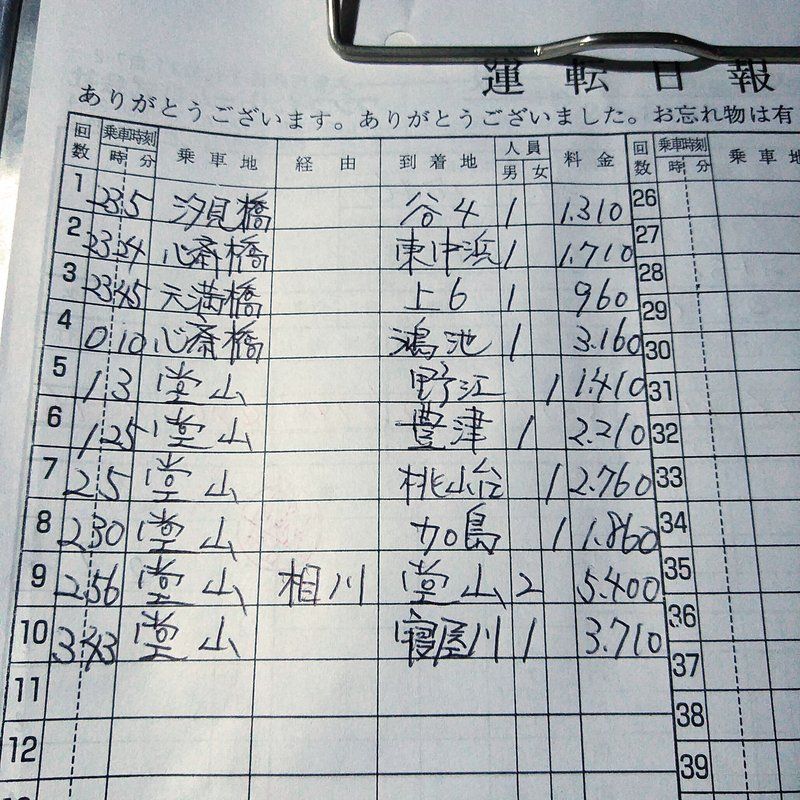 運転日報
ありがとうございます。ありがとうございました。お忘れ物は有
回数 乗車時刻 時 分 乗車地 経由 到着地 人員 男 女 料金 回数 乗車時刻 時 分 乗車地
1 23 5 汐見橋 谷4 1 1.310 26
2 23 24 心斎橋 東中浜 1 1.710 27
3 23 45 天満橋 上6 1 960 28
4 0 10 心斎橋 鴻池 1 3.160 29
5 1 3 堂山 野江 1 1.410 30
6 1 25 堂山 豊津 1 2.210 31
7 2 5 堂山 桃山台 1 2.760 32
8 2 30 堂山 加島 1 1.860 33
9 2 56 堂山 相川 堂山 2 5.400 34
10 3 43 堂山 寝屋川 1 3.710 35
11 36
12 37
38
39